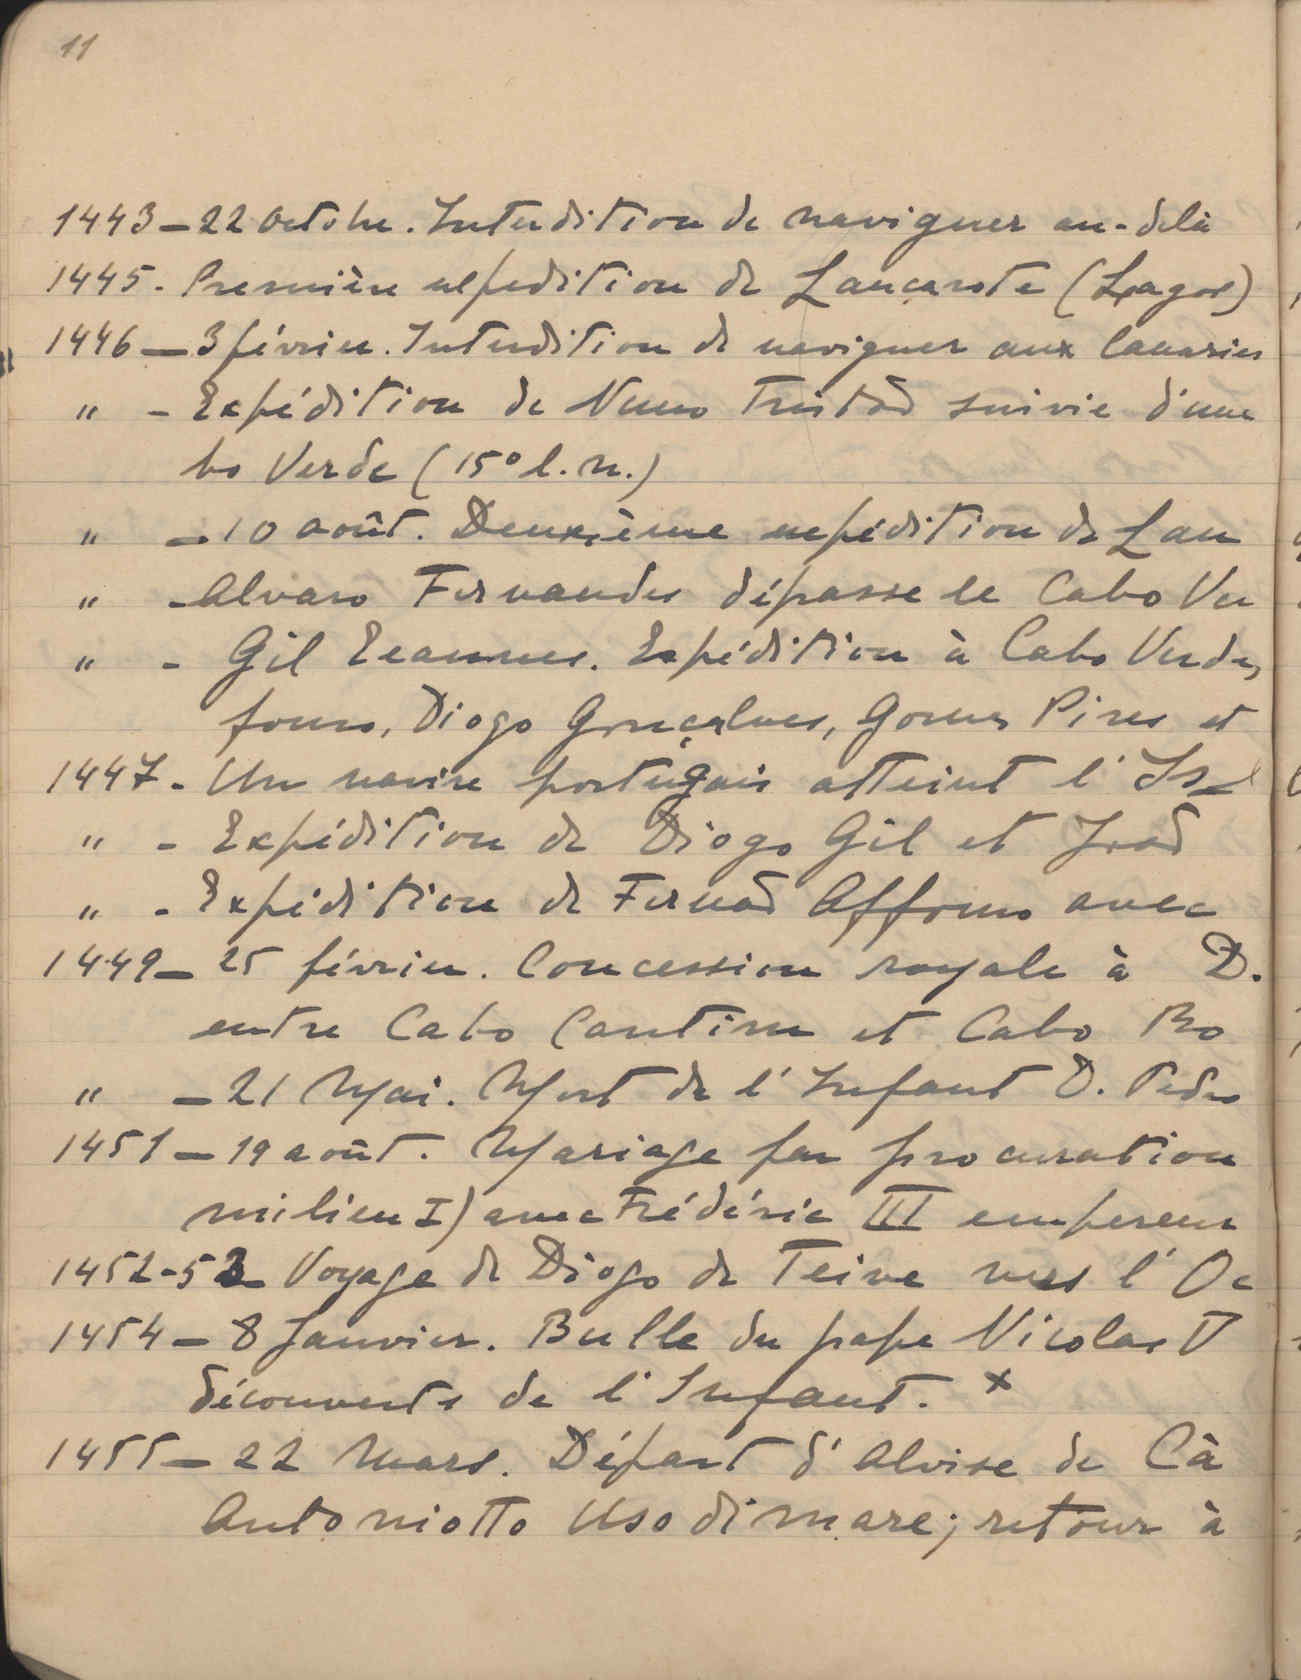 11
1443 – 22 Octobre. Interdition de naviguer au-delà
1445 - Première expedition de Lançarote (Lagos)
1446 – 3 février. Interdition de naviguer aux Canaries
" - Expédition de Nuno Tristão suivie d'une
bo Verde (15° l. n.)
" - 10 août. Deuxième expédition de Lan
" - Alvaro Fernandes dépasse le Cabo Ver
" - Gil Eeannes. Expédition à Cabo Verde,
fonso, Diogo Gonçalves, Gomes Pires et
1447 - Un navire portugais atteint l'Isl
" - Expédition de Diogo Gil et Joaõ
" - Expédition de Fernaõ Affonso avec
1449 – 25 février. Concession royale à D.
entre Cabo Cantim et Cabo Bo
" – 21 Mai. Mort de l'Infant D. Pedro
1451 – 19 août. Mariage par procuration
milien I) avec Frédéric III empereur
1452-53 Voyage de Diogo de Teive vers l'Oc
1454 – 8 Janvier. Bulle du pape Nicolas V
découverts de l'Infant. x
1455 – 22 Mars. Départ d'Alvise de Cà
Antoniotto Usodimare; retour à